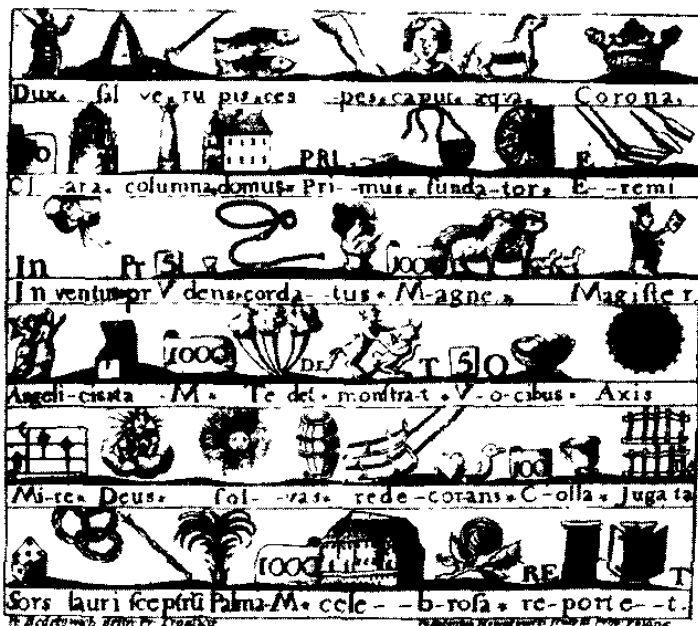 Dux. sal ve. ru pis. ces pes. caput. æqva. Corona.
O PRI E
Cl-ara. columna. domus. Pri--mus. funda-tor. E--remi
In Pr 5 100
In ventus. pr V dens. corda--tus. M-agne. Magister
1000 DE T 5 O
Angeli-ca -M. Te del. monstra-t. V-o-cibus. Axis
100
Mi-re. Deus. sol--vas. rede-corans. C-olla. Jugata
1000 RE T
Sors lauri sceptrũ Palma-M. cele--b-rosa. re-porte--t.